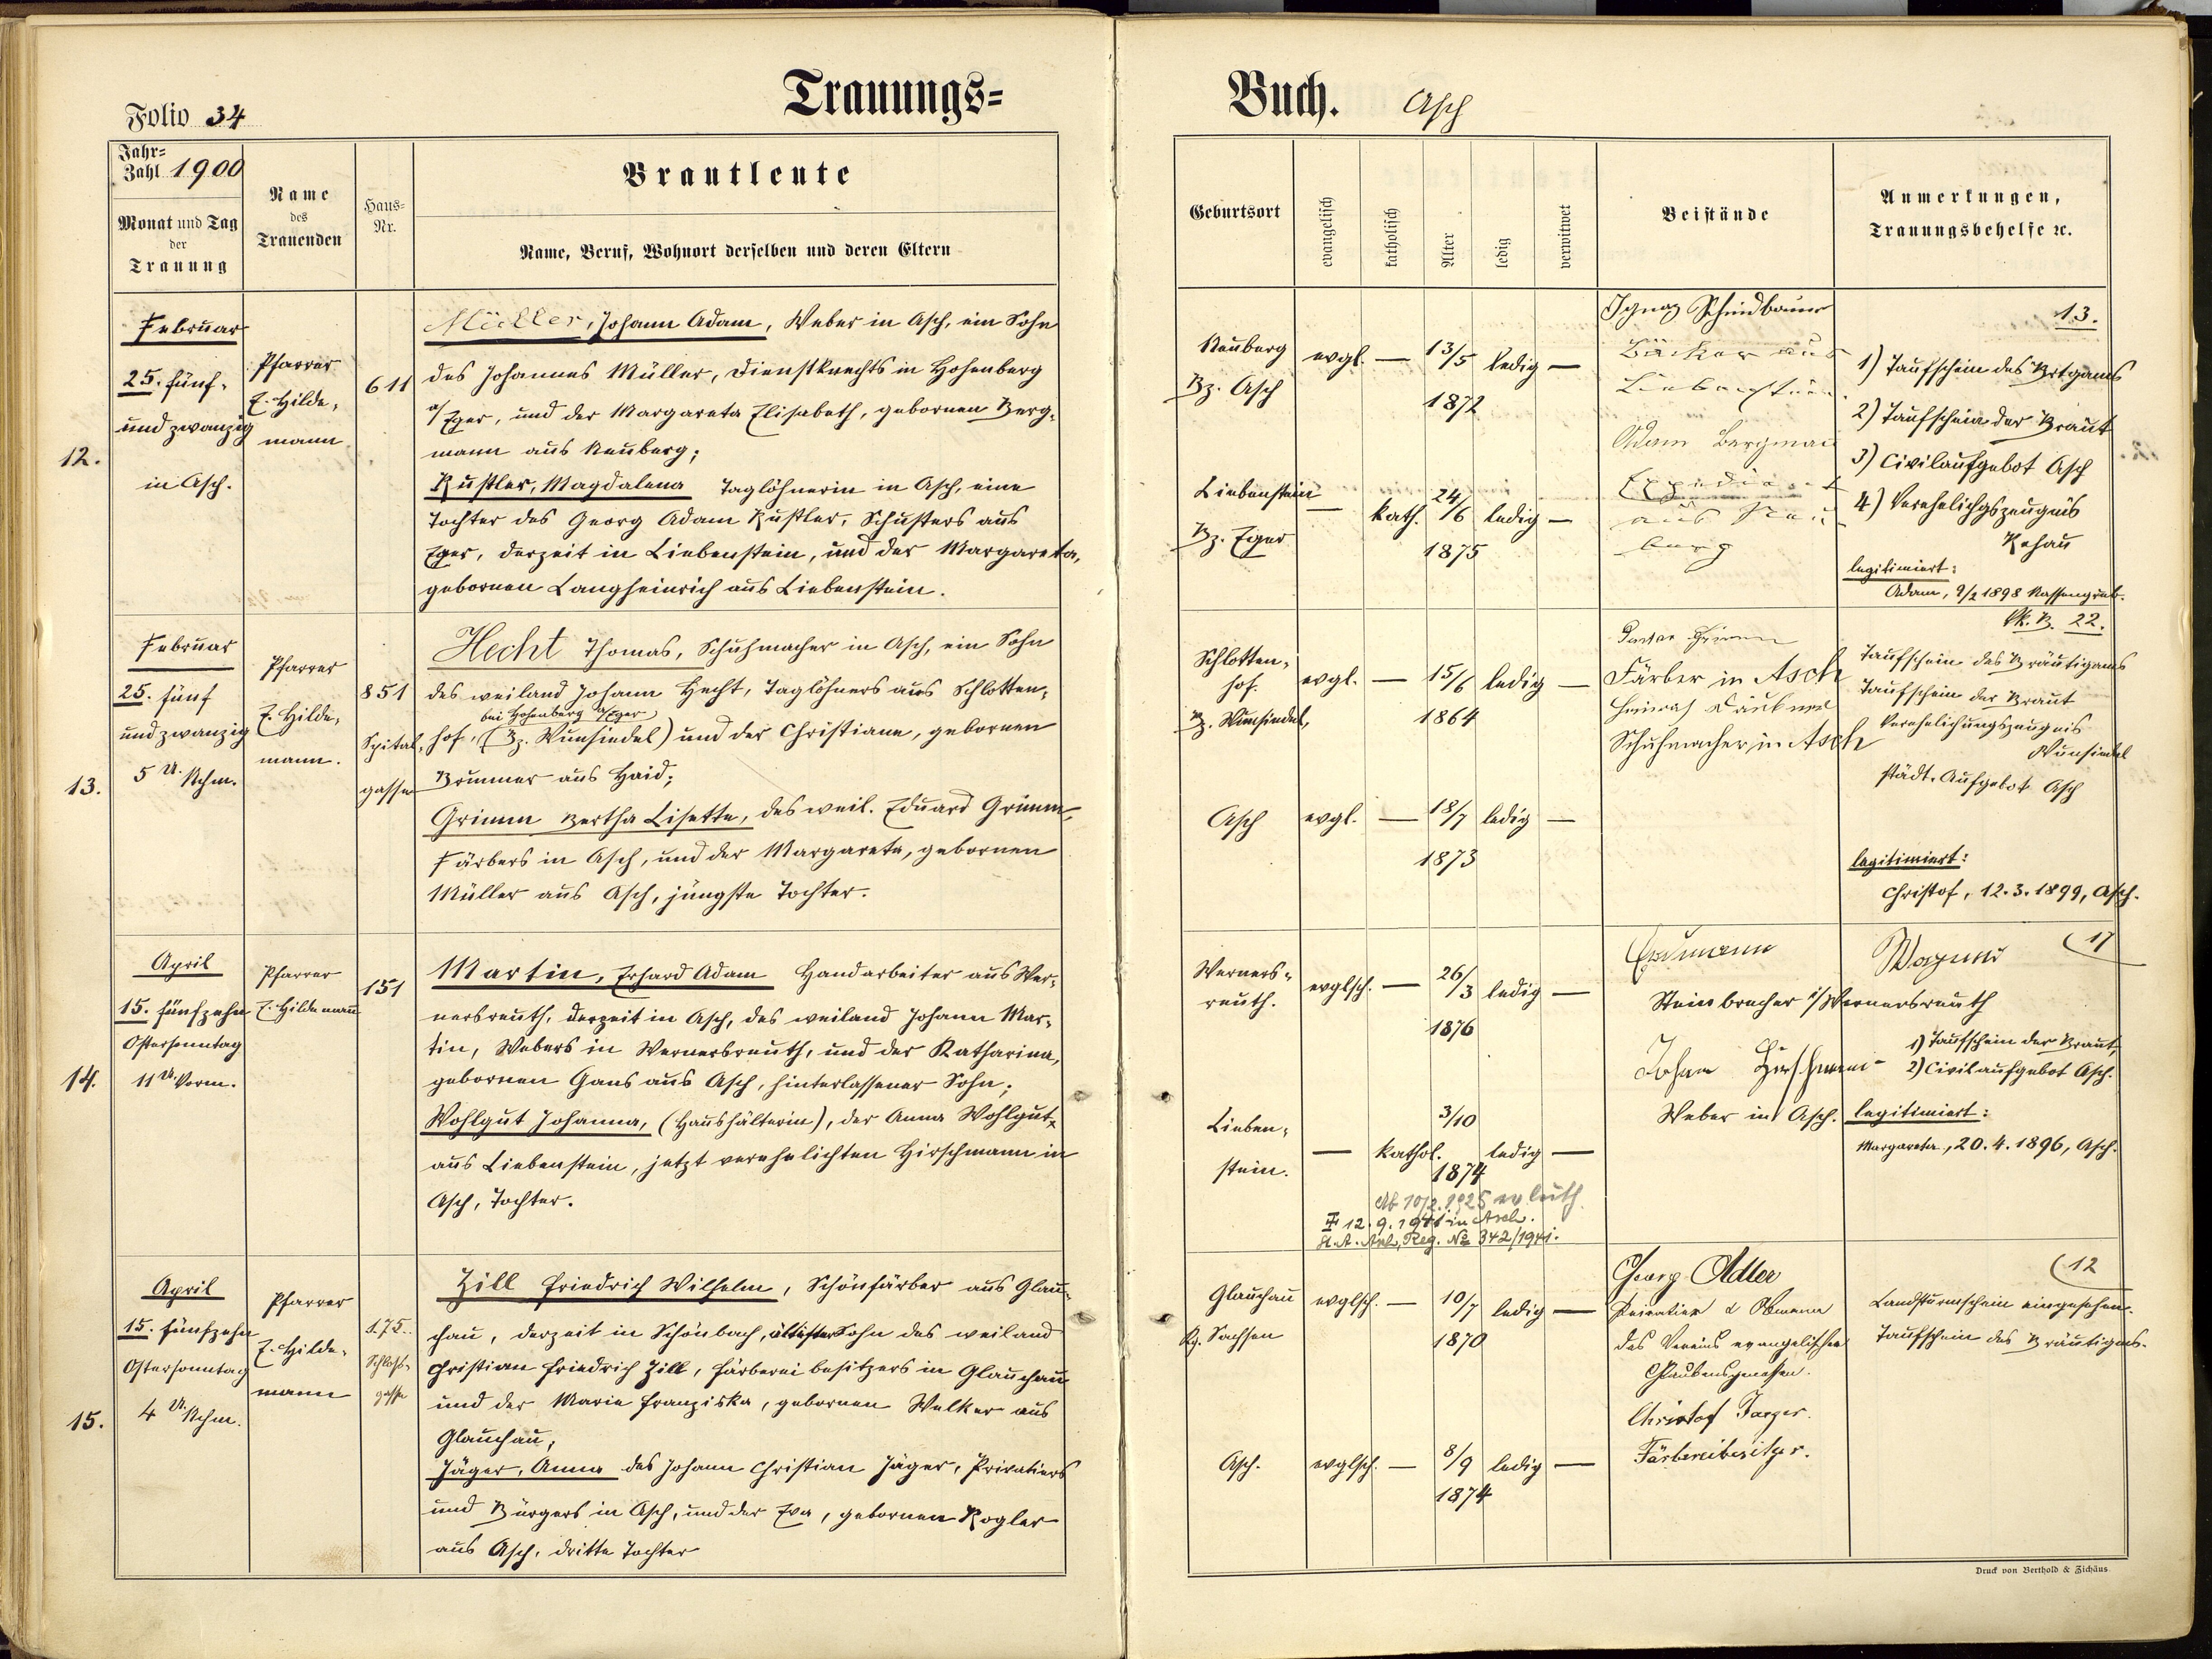 Trauungs=
Folio 34
Jahr=
Zahl 1900
Monat und Tag
der
Trauung
Name
des
Trauenden
Haus=
Nr.
Brautleute
Name, Beruf, Wohnort derselben und deren Eltern
12.
Februar
25. fünf-
und zwanzig
in Asch.
Pfarrer
E. Hilde-
mann
611
Müller, Johann Adam, Weber in Asch, ein Sohn
des Johannes Müller, Dienstknechts in Hohenberg
a/Eger, und der Margareta Elisabeth, gebornen Berg-
mann aus Neuberg;
Küstler, Magdalena Taglöhnerin in Asch, eine
Tochter des Georg Adam Küstler, Schusters aus
Eger, derzeit in Liebenstein, und der Margareta,
gebornen Langheinrich aus Liebenstein.
13.
Februar
25. fünf
und zwanzig
5 U. Nchm.
Pfarrer
E. Hilde-
mann.
851
Spital-
gasse
Hecht Thomas, Schuhmacher in Asch, ein Sohn
des weiland Johann Hecht, Taglöhners aus Schlotten-
bei Hohenberg a/Eger
hof, (Bz. Wunsiedel) und der Christiane, gebornen
Brunner aus Haid;
Grimm Bertha Lisette, des weil. Eduard Grimm,
Färbers in Asch, und der Margareta, gebornen
Müller aus Asch, jüngste Tochter.
14.
April
15. fünfzehn
Ostersonntag
11 U. Vorm.
Pfarrer
E. Hildemann
151
Martin, Erhard Adam Handarbeiter aus Wer-
nersreuth, derzeit in Asch, des weiland Johann Mar-
tin, Webers in Wernersreuth, und der Katharina,
gebornen Gans aus Asch, hinterlassener Sohn;
Wohlgut Johanna, (Haushälterin), der Anna Wohlgut,
aus Liebenstein, jetzt verehelichten Hirschmann in
Asch, Tochter.
15.
April
15. fünfzehn
Ostersonntag
4 U. Nchm.
Pfarrer
E. Hilde-
mann
175.
Schloß-
gasse
Zill Friedrich Wilhelm, Schönfärber aus Glau-
chau, derzeit in Schönbach, ältester Sohn des weiland
Christian Friedrich Zill, Färbereibesitzers in Glauchau
und der Marie Franziska, gebornen Welker aus
Glauchau;
Jäger, Anna des Johann Christian Jäger, Privatiers
und Bürgers in Asch, und der Eva, gebornen Kogler
aus Asch, dritte Tochter
Buch. Asch
Geburtsort
evangelisch
katholisch
Alter
ledig
verwitwet
Beistände
Anmerkungen,
Trauungsbehelfe ꝛc.
Neuberg
Bz. Asch
evgl. — 13/5 1872 ledig —
Liebenstein
Bz. Eger
— kath. 24/6 1875 ledig —
Ignaz
Bäcker aus
Liebenstein
Adam Bergmann
Expedient
aus Neu
berg
13.
1) Taufschein des Brtgams
2) Taufschein der Braut
3) Civilaufgebot Asch
4) Verehelichgszeugnis
Rehau
legitimiert:
Adam, 9/2 1898 Nassengrub.
Schlotten-
hof.
Bz. Wunsiedel,
evgl. — 15/6 1864 ledig —
Asch
evgl. — 18/7 1873 ledig —
Färber in Asch
Schuhmacher in Asch
22.
Taufschein des Bräutigams
Taufschein der Braut
Verehelichungszeugnis
Wunsiedel
städt. Aufgebot Asch
legitimiert:
Christof, 12.3.1899, Asch.
Werners-
reuth.
evglsch. — 26/3 1876 ledig —
Lieben-
stein.
— kathol. 3/10 1874 ledig —
Ab 10/2.1925 ev. luth.
12.9.1941 in Asch.
St. A. Asch, Reg. № 342/1941.
Erdmann Wagner
Steinbrecher i/Wernersreuth
Johann Hirschmann
Weber in Asch.
17
1) Taufschein der Braut,
2) Civilaufgebot Asch.
legitimiert:
Margareta, 20.4.1896, Asch.
Glauchau
Kg. Sachsen
evglsch. — 10/7 1870 ledig —
Asch.
evglsch. — 8/9 1874 ledig —
Georg Adler
Privatier & Obmann
des Vereins evangelischer
Glaubensgenossen.
Christof Jaeger.
Färbereibesitzer.
12
Landsturmschein eingesehen.
Taufschein des Bräutigams.
Druck von Berthold & Zichäus.